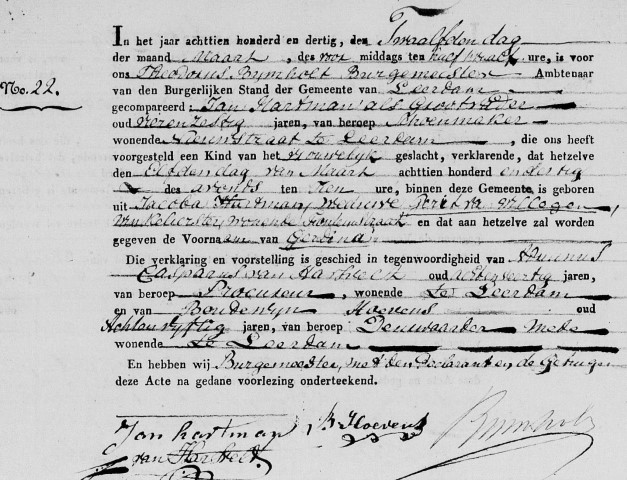 In het jaar achttien honderd en dertig, den Twaalfden dag
der maand Maart, des voor middags ten half twaalf ure, is voor
ons Theodorus Bijmholt Burgemeester Ambtenaar
No. 22.
van den Burgerlijken Stand der Gemeente van Leerdam
gecompareerd Jan Hartman als Grootvader
oud vier en zestig jaren, van beroep Schoenmaker
wonende Nieuwstraat te Leerdam, die ons heeft
voorgesteld een Kind van het vrouwelijk geslacht, verklarende, dat hetzelve
den Elfden dag van Maart achttien honderd en dertig
des avonds ten tien ure, binnen deze Gemeente is geboren
uit Jacoba Hartman, weduwe
Winkelierster, wonende en dat aan hetzelve zal worden
gegeven de Voornaam van Gerdina
Die verklaring en voorstelling is geschied in tegenwoordigheid van
Casparus van Hasselt oud veertig jaren,
van beroep Procureur, wonende te Leerdam
en van Boudewyn Hoevens oud
Achtenvyftig jaren, van beroep Deurwaarder mede
wonende te Leerdam
En hebben wij Burgemeester, met den Declarant en de Getuigen
deze Acte na gedane voorlezing onderteekend.
Jan hartman B Hoevens Bijmholt
van Hasselt